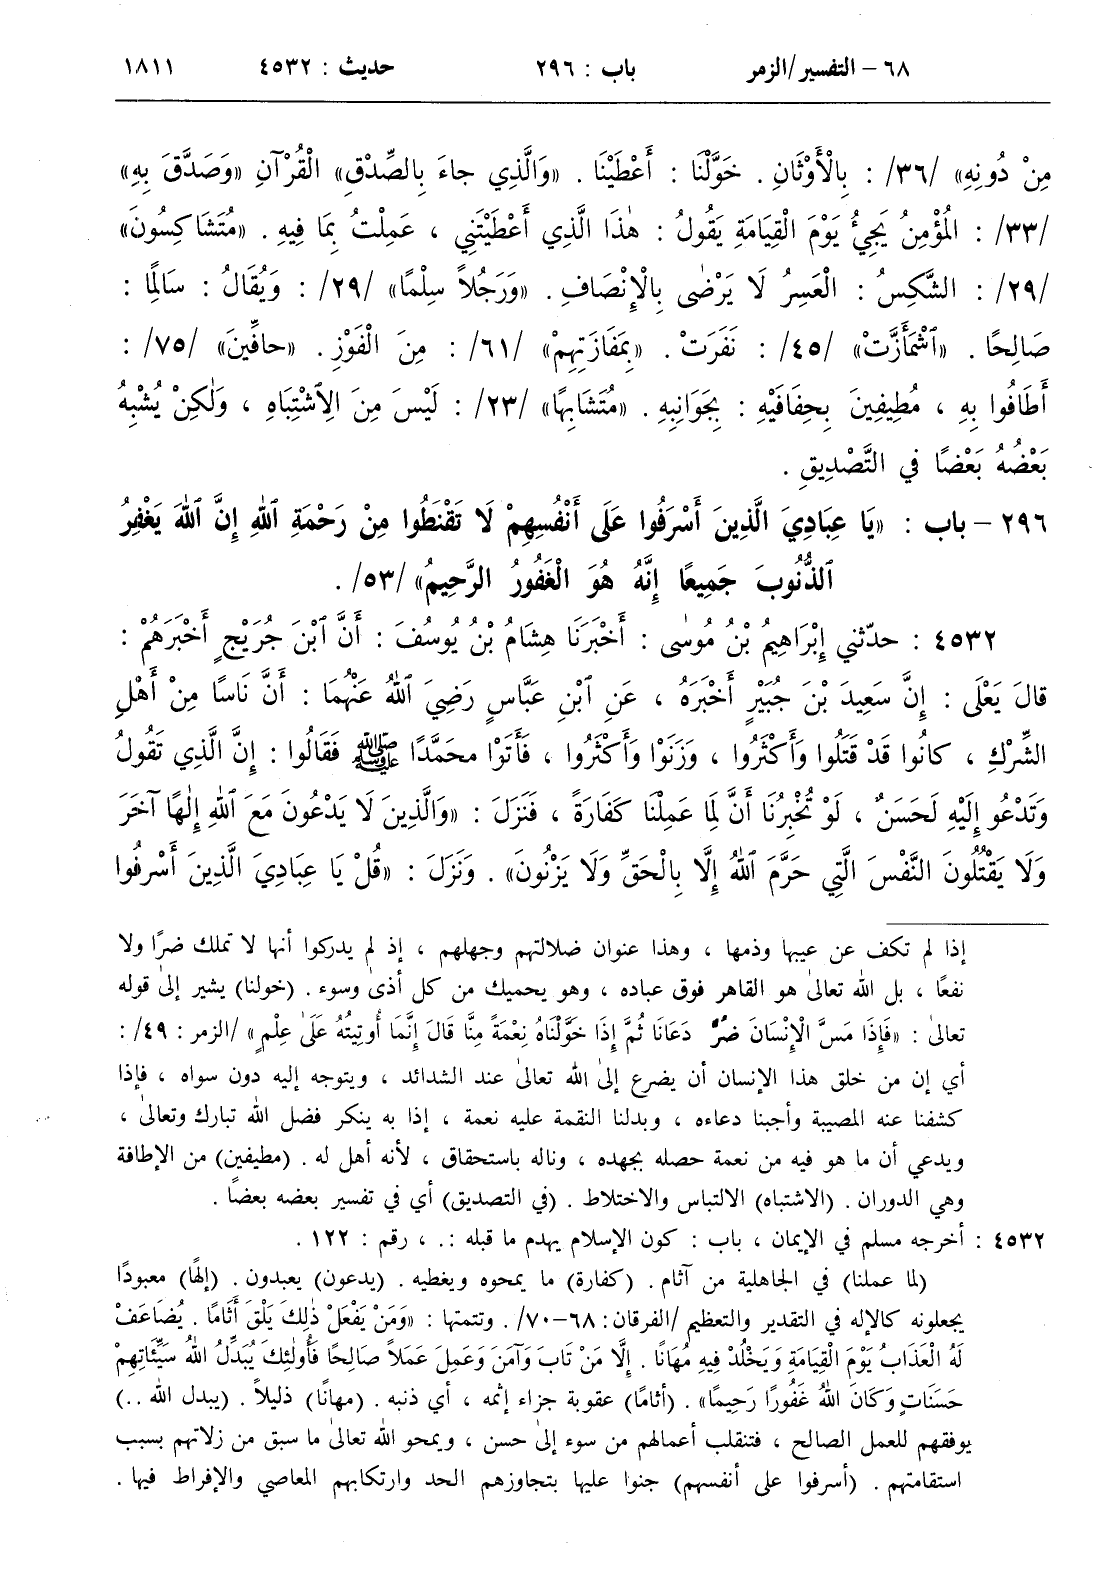 ٦٨ – التفسير/الزمر باب : ٢٩٦ حديث : ٤٥٣٢ ١٨١١
مِنْ دُونِهِ» /٣٦/ : بِالْأَوْثَانِ . خَوَّلْنَا : أَعْطَيْنَا . «وَالَّذِي جاءَ بِالصِّدْقِ» الْقُرْآنِ «وَصَدَّقَ بِهِ»
/٣٣/ : الْمُؤْمِنُ يَجِيُّ يَوْمَ الْقِيَامَةِ يَقُولُ : هٰذَا الَّذِي أَعْطَيْتَنِي ، عَمِلْتُ بِمَا فِيهِ . «مُتَشَاكِسُونَ»
/٢٩/ : الشَّكِسُ : الْعَسِرُ لَا يَرْضٰى بِالْإِنْصَافِ . «وَرَجُلاً سِلْمًا» /٢٩/ : وَيُقَالُ : سَالِمًا :
صَالِحًا . «ٱشْمَأَزَّتْ» /٤٥/ : نَفَرَتْ . «بِمَفَازَتِهِمْ» /٦١/ : مِنَ الْفَوْزِ . «حافِّينَ» /٧٥/ :
أَطَافُوا بِهِ ، مُطِيفِينَ بِحِفَافَيْهِ : بِجَوَانِبِهِ . «مُتَشَابِهًا» /٢٣/ : لَيْسَ مِنَ الِٱشْتِبَاهِ ، وَلٰكِنْ يُشْبِهُ
بَعْضُهُ بَعْضًا فِي التَّصْدِيقِ .
٢٩٦ – باب : «يَا عِبَادِيَ الَّذِينَ أَسْرَفُوا عَلَى أَنْفُسِهِمْ لَا تَقْنَطُوا مِنْ رَحْمَةِ ٱللهِ إِنَّ ٱللهَ يَغْفِرُ
ٱلذُّنُوبَ جَمِيعًا إِنَّهُ هُوَ الْغَفُورُ الرَّحِيمُ» /٥٣/ .
٤٥٣٢ : حدّثني إِبْرَاهِيمُ بْنُ مُوسٰى : أَخْبَرَنَا هِشَامُ بْنُ يُوسُفَ : أَنَّ ٱبْنَ جُرَيْجٍ أَخْبَرَهُمْ :
قالَ يَعْلَى : إِنَّ سَعِيدَ بْنَ جُبَيْرٍ أَخْبَرَهُ ، عَنِ ٱبْنِ عَبَّاسٍ رَضِيَ ٱللهُ عَنْهُمَا : أَنَّ نَاسًا مِنْ أَهْلِ
الشِّرْكِ ، كانُوا قَدْ قَتَلُوا وَأَكْثَرُوا ، وَزَنَوْا وَأَكْثَرُوا ، فَأَتَوْا محَمَّدًا ﷺ فَقَالُوا : إِنَّ الَّذِي تَقُولُ
وَتَدْعُو إِلَيْهِ لَحَسَنٌ ، لَوْ تُخْبِرُنَا أَنَّ لِمَا عَمِلْنَا كَفَارَةً ، فَنَزَلَ : «وَالَّذِينَ لَا يَدْعُونَ مَعَ ٱللهِ إِلٰهًا آخَرَ
وَلَا يَقْتُلُونَ النَّفْسَ الَّتِي حَرَّمَ ٱللهُ إِلَّا بِالْحَقِّ وَلَا يَزْنُونَ» . وَنَزَلَ : «قُلْ يَا عِبَادِيَ الَّذِينَ أَسْرَفُوا
إذا لم تكف عن عيبها وذمها ، وهذا عنوان ضلالتهم وجهلهم ، إذ لم يدركوا أنها لا تملك ضرًا ولا
نفعًا ، بل الله تعالىٰ هو القاهر فوق عباده ، وهو يحميك من كل أذىٰ وسوء . (خولنا) يشير إلىٰ قوله
تعالىٰ : «فَإِذَا مَسَّ الْإِنْسَانَ ضُرٌّ دَعَانَا ثُمَّ إِذَا خَوَّلْنَاهُ نِعْمَةً مِنَّا قَالَ إِنَّمَا أُوتِيتُهُ عَلَىٰ عِلْمٍ» /الزمر : ٤٩/ :
أي إن من خلق هذا الإنسان أن يضرع إلىٰ الله تعالىٰ عند الشدائد ، ويتوجه إليه دون سواه ، فإذا
كشفنا عنه المصيبة وأجبنا دعاءه ، وبدلنا النقمة عليه نعمة ، إذا به ينكر فضل الله تبارك وتعالىٰ ،
ويدعي أن ما هو فيه من نعمة حصله بجهده ، وناله باستحقاق ، لأنه أهل له . (مطيفين) من الإطافة
وهي الدوران . (الاشتباه) الالتباس والاختلاط . (في التصديق) أي في تفسير بعضه بعضًا .
٤٥٣٢ : أخرجه مسلم في الإيمان ، باب : كون الإسلام يهدم ما قبله .: ، رقم : ١٢٢ .
(لما عملنا) في الجاهلية من آثام . (كفارة) ما يمحوه ويغطيه . (يدعون) يعبدون . (إلهًا) معبودًا
يجعلونه كالإله في التقدير والتعظيم /الفرقان: ٦٨–٧٠/ . وتتمتها : «وَمَنْ يَفْعَلْ ذٰلِكَ يَلْقَ أَثَامًا . يُضَاعَفْ
لَهُ الْعَذَابُ يَوْمَ الْقِيَامَةِ وَيَخْلُدْ فِيهِ مُهَانًا . إِلَّا مَنْ تَابَ وَآمَنَ وَعَمِلَ عَمَلاً صَالِحًا فَأُولٰئِكَ يُبَدِّلُ اللهُ سَيِّئَاتِهِمْ
حَسَنَاتٍ وَكَانَ اللهُ غَفُورًا رَحِيمًا» . (أثامًا) عقوبة جزاء إثمه ، أي ذنبه . (مهانًا) ذليلاً . (يبدل الله ..)
يوفقهم للعمل الصالح ، فتنقلب أعمالهم من سوء إلىٰ حسن ، ويمحو الله تعالىٰ ما سبق من زلاتهم بسبب
استقامتهم . (أسرفوا على أنفسهم) جنوا عليها بتجاوزهم الحد وارتكابهم المعاصي والإفراط فيها .